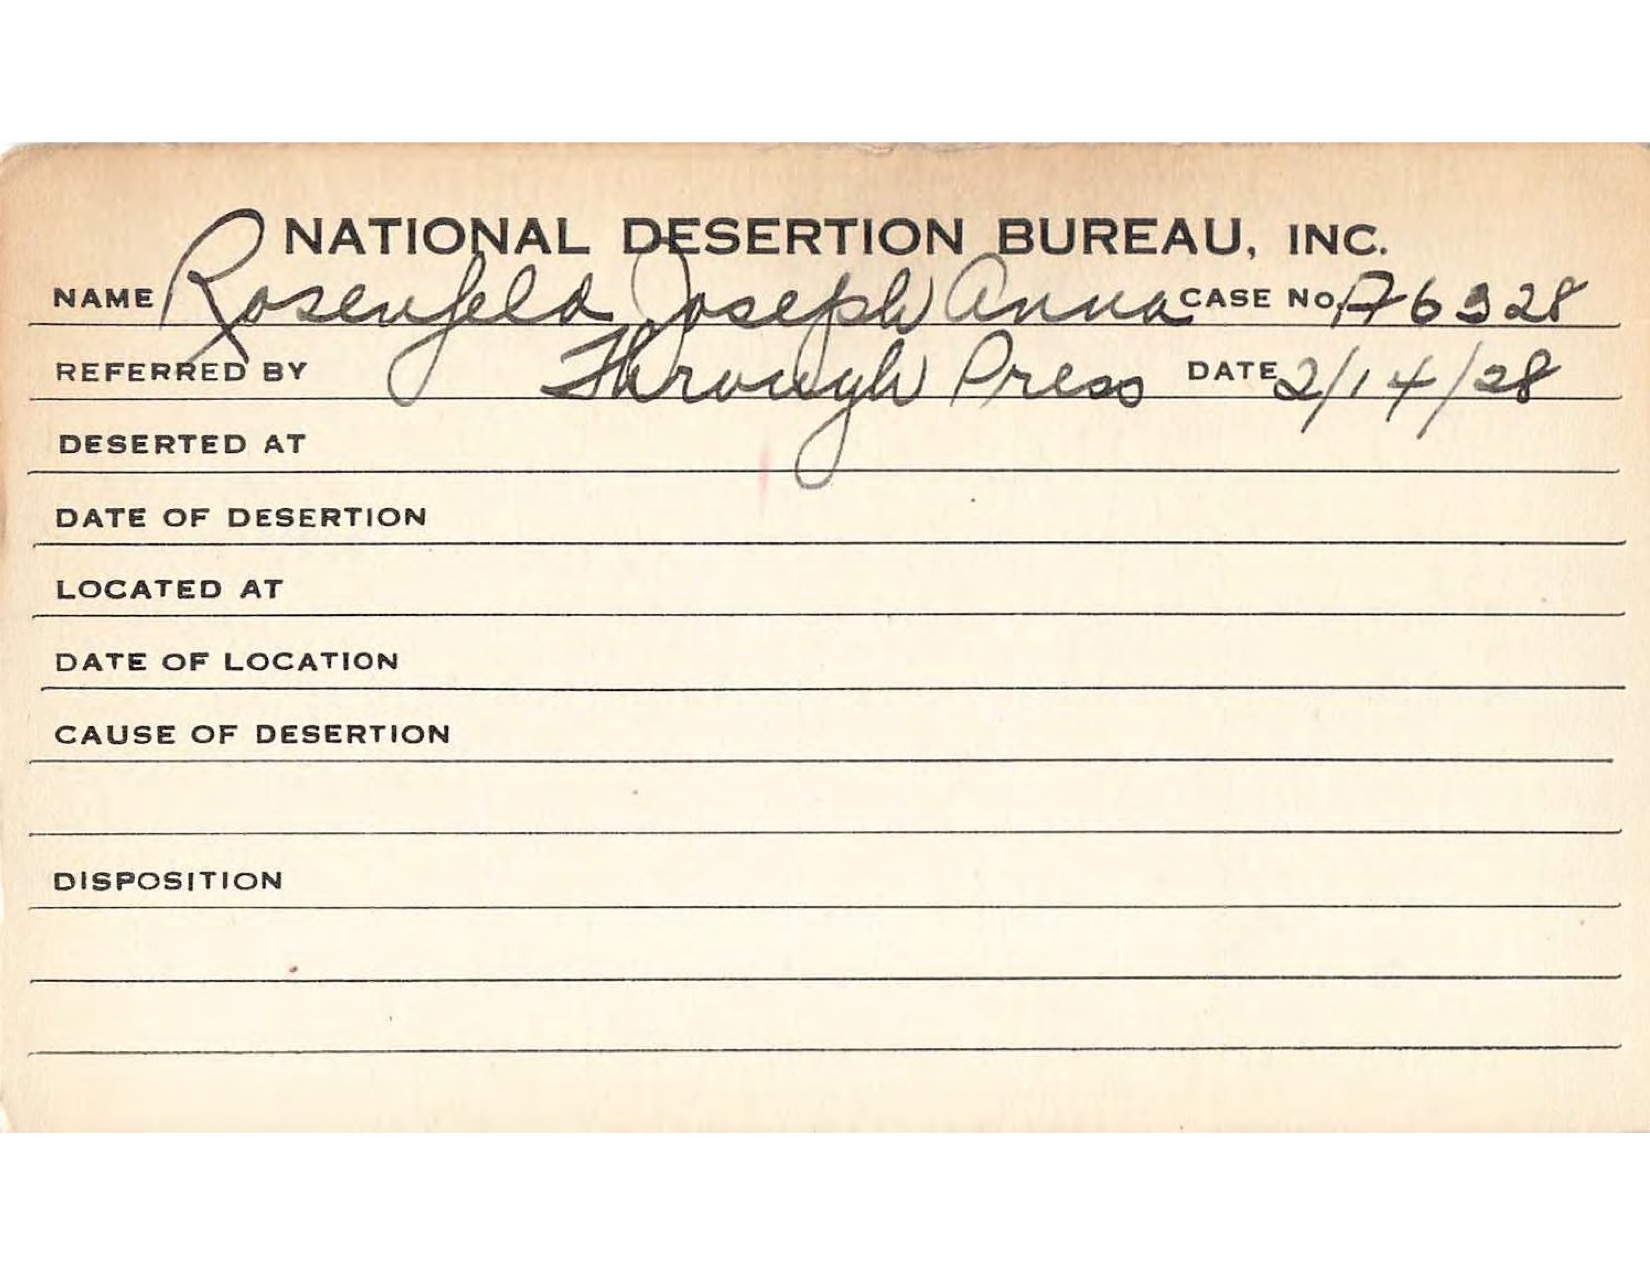 NATIONAL DESERTION BUREAU, INC.
NAME Rosenfeld Joseph Anna CASE NO. A6328
REFERRED BY Through Press DATE 2/14/28
DESERTED AT
DATE OF DESERTION
LOCATED AT
DATE OF LOCATION
CAUSE OF DESERTION
DISPOSITION